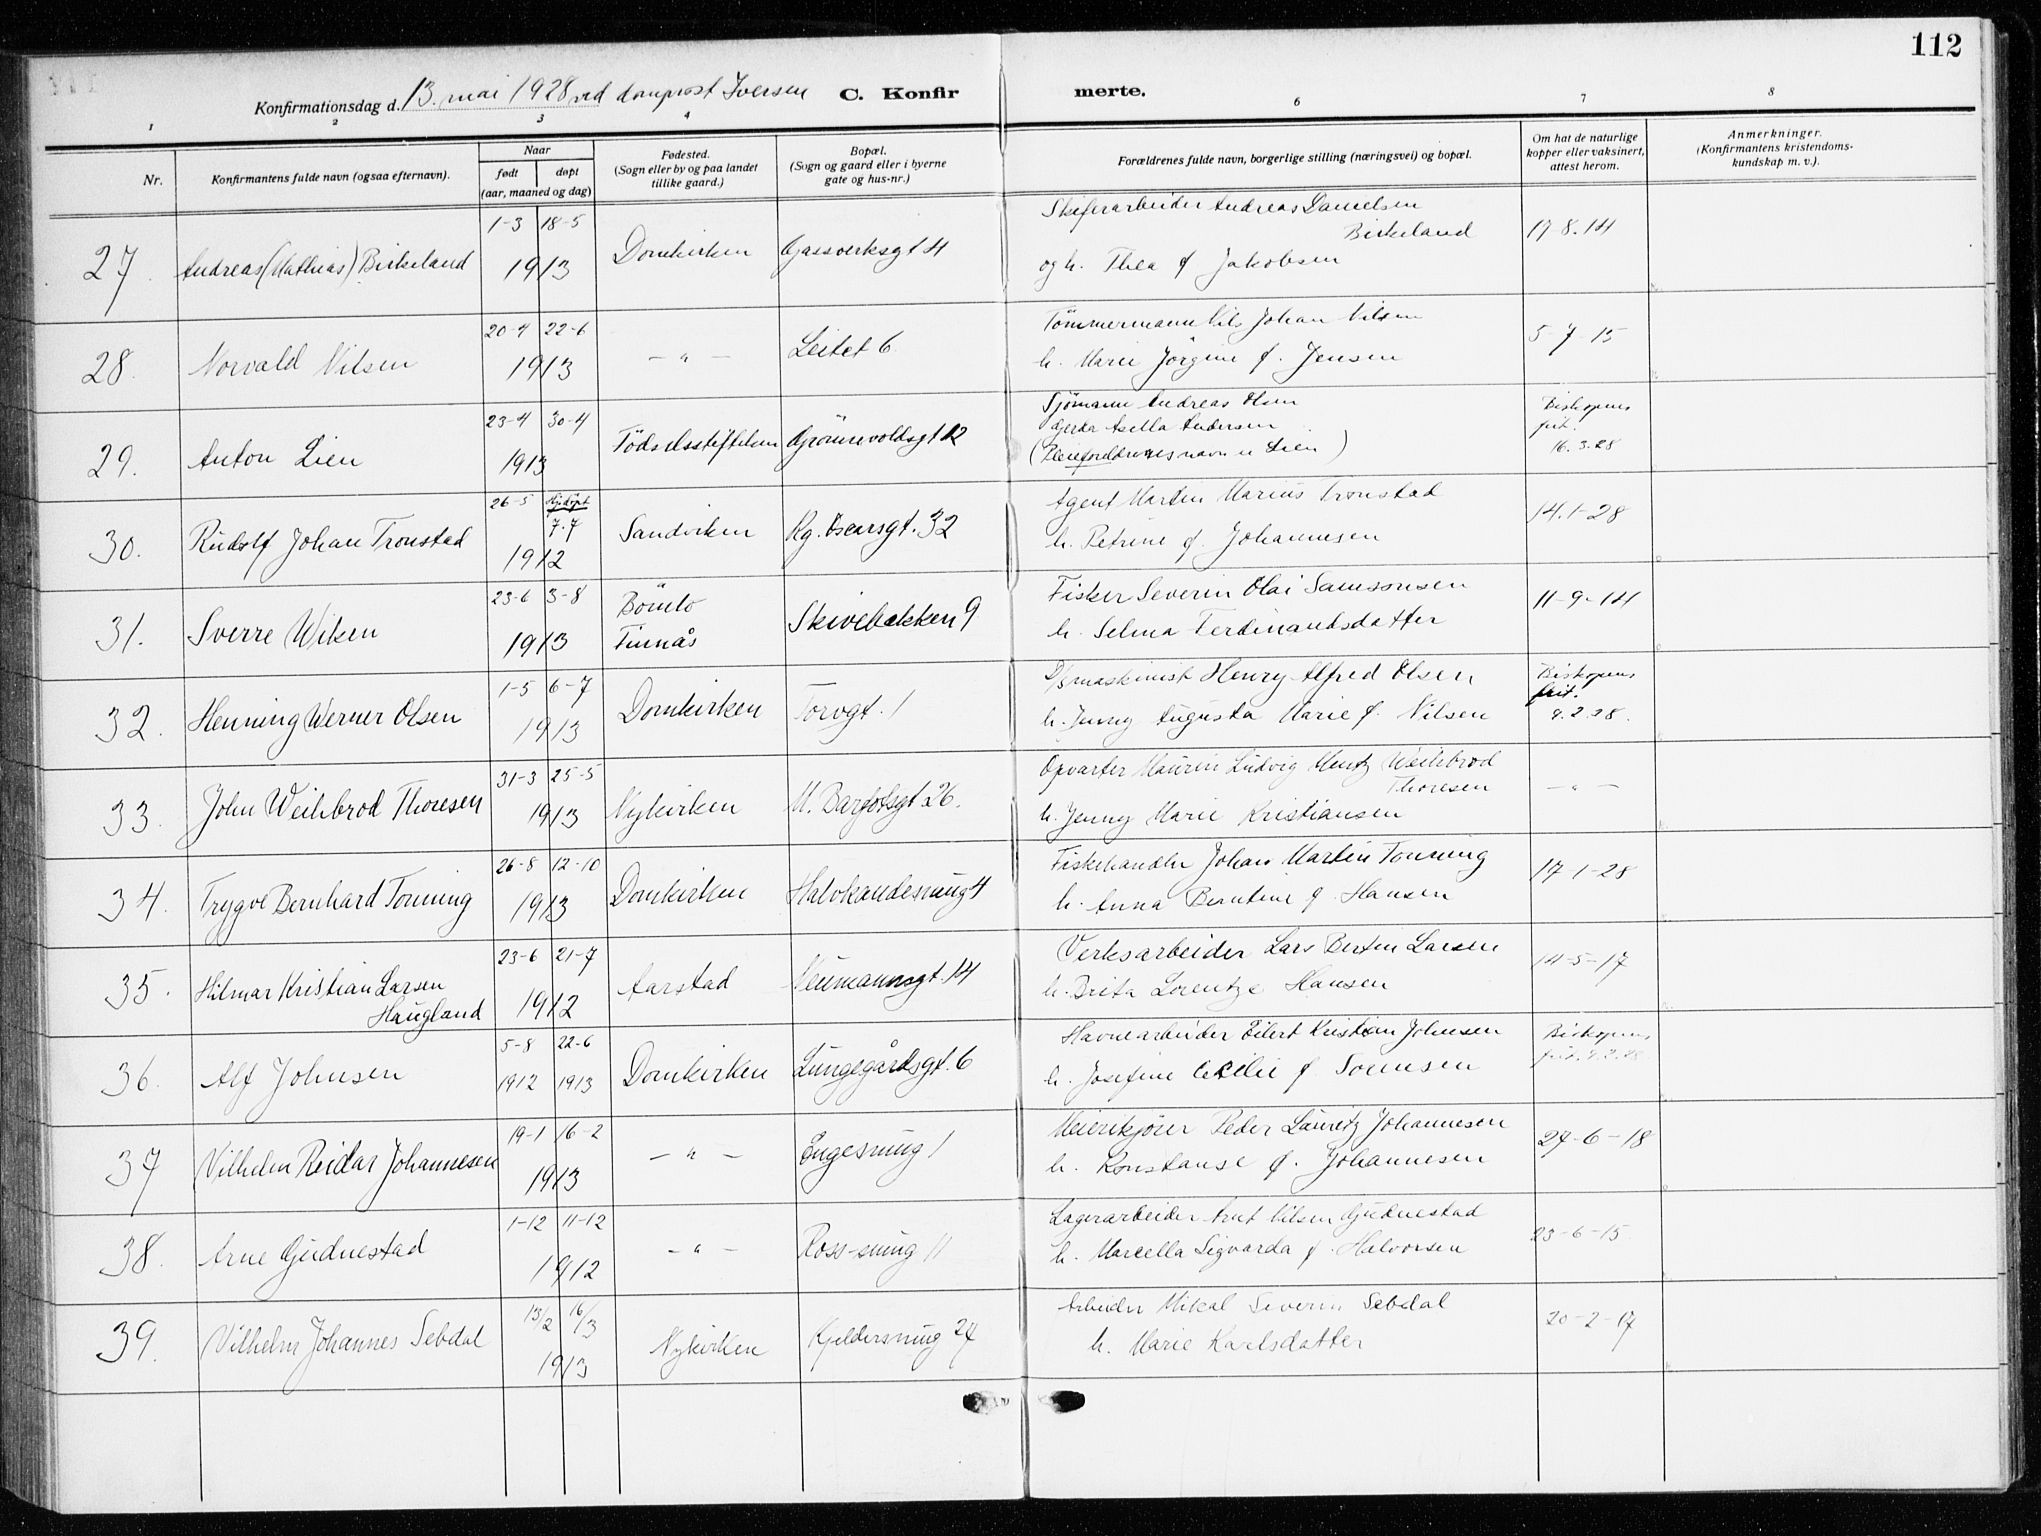 112
Konfirmationsdag d. 13. mai 1928 ved domprost Iversen C. Konfirmerte.
1 2 3 4 6 7 8
Nr.
Konfirmantens fulde navn (ogsaa efternavn).
Naar
født døpt
(aar, maaned og dag)
Fødested.
(Sogn eller by og paa landet
tillike gaard.)
Bopæl.
(Sogn og gaard eller i byerne
gate og hus-nr.)
Forældrenes fulde navn, borgerlige stilling (næringsvei) og bopæl.
Om hat de naturlige
kopper eller vaksinert,
attest herom.
Anmerkninger.
(Konfirmantens kristendoms-
kundskap m. v.).
27. Andreas (Mathias) Birkeland 1-3 18-5 1913 Domkirken Gassverksgt 4
Skiferarbeider Andreas Danielsen
Birkeland
og h. Thea f Jakobsen
19-8.14
28. Norvald Nilsen 20-4 22-6 1913 — " — Leitet 6
Tömmermann Nils Johan Nilsen
h. Marie Jörgine f. Jensen
5-7-15
29. Anton Lien 23-4 30-4 1913 Födselsstiftelsen Grönnevoldsgt 12
Sjömann Andreas Olsen
Gerda Asella Andersen
(Pleieforeldrenes navn er Lien)
Biskopens
frit.
16.3.28
30. Rudolf Johan Tronstad 26-5 Hjdöpt 7.7 1912 Sandviken Kg. Oscarsgt. 32
Agent Martin Marius Tronstad
h. Petrine f. Johannesen
14.1-28
31. Sverre Wiken 23-6 3-8 1913 Bömlo
Finnås Skivebakken 9
Fisker Severin Olai Samsonsen
h. Selma Ferdinandsdatter
11-9-14
32. Henning Werner Olsen 1-5 6-7 1913 Domkirken Torvgt. 1
D/Smaskinist Henry Alfred Olsen
h. Jenny Augusta Marie f. Nilsen
Biskopens
frit.
9.2.28.
33. John Weihbrod Thoresen 31-3 25-5 1913 Nykirken M. Barfotsgt 26.
Opvarter Maurin Ludvig Mentz Weihbrod
Thoresen
h. Jenny Marie Kristiansen
— " —
34. Trygve Bernhard Tonning 26-8 12-10 1913 Domkirken Halvkandesmug 4
Fiskehandler Johan Martin Tonning
h. Anna Berntine f Hansen
17-1-28
35. Hilmar Kristian Larsen
Haugland 23-6 21-7 1912 Aarstad Neumannsgt. 14
Verksarbeider Lars Bertin Larsen
h. Brita Lorentze Hansen
14-5-17
36. Alf Johnsen 5-8 1912 22-6 1913 Domkirken Lungegårdsgt. 6
Havnearbeider Eilert Kristian Johnsen
h. Josefine Cecilie f Sonnsen
Biskopens
frit. 9.2.28
37 Vilhelm Reidar Johannesen 19-1 16-2 1913 — " — Engesmug 1
Meierikjörer Peder Lauritz Johannesen
h. Konstanse f. Johannesen
27-6-18
38. Arne Gudnestad 1-12 11-12 1912 — " — Ross-smug 11
Lagerarbeider Knut Nilsen Gudnestad
h. Marcella Sigvarda f. Halvorsen
23-6-15.
39. Vilhelm Johannes Sebdal 13/2 16/3 1913 Nykirken Kjeldersmug 24
Arbeider Mikal Severin Sebdal
h. Marie Karlsdatter
20-2-17